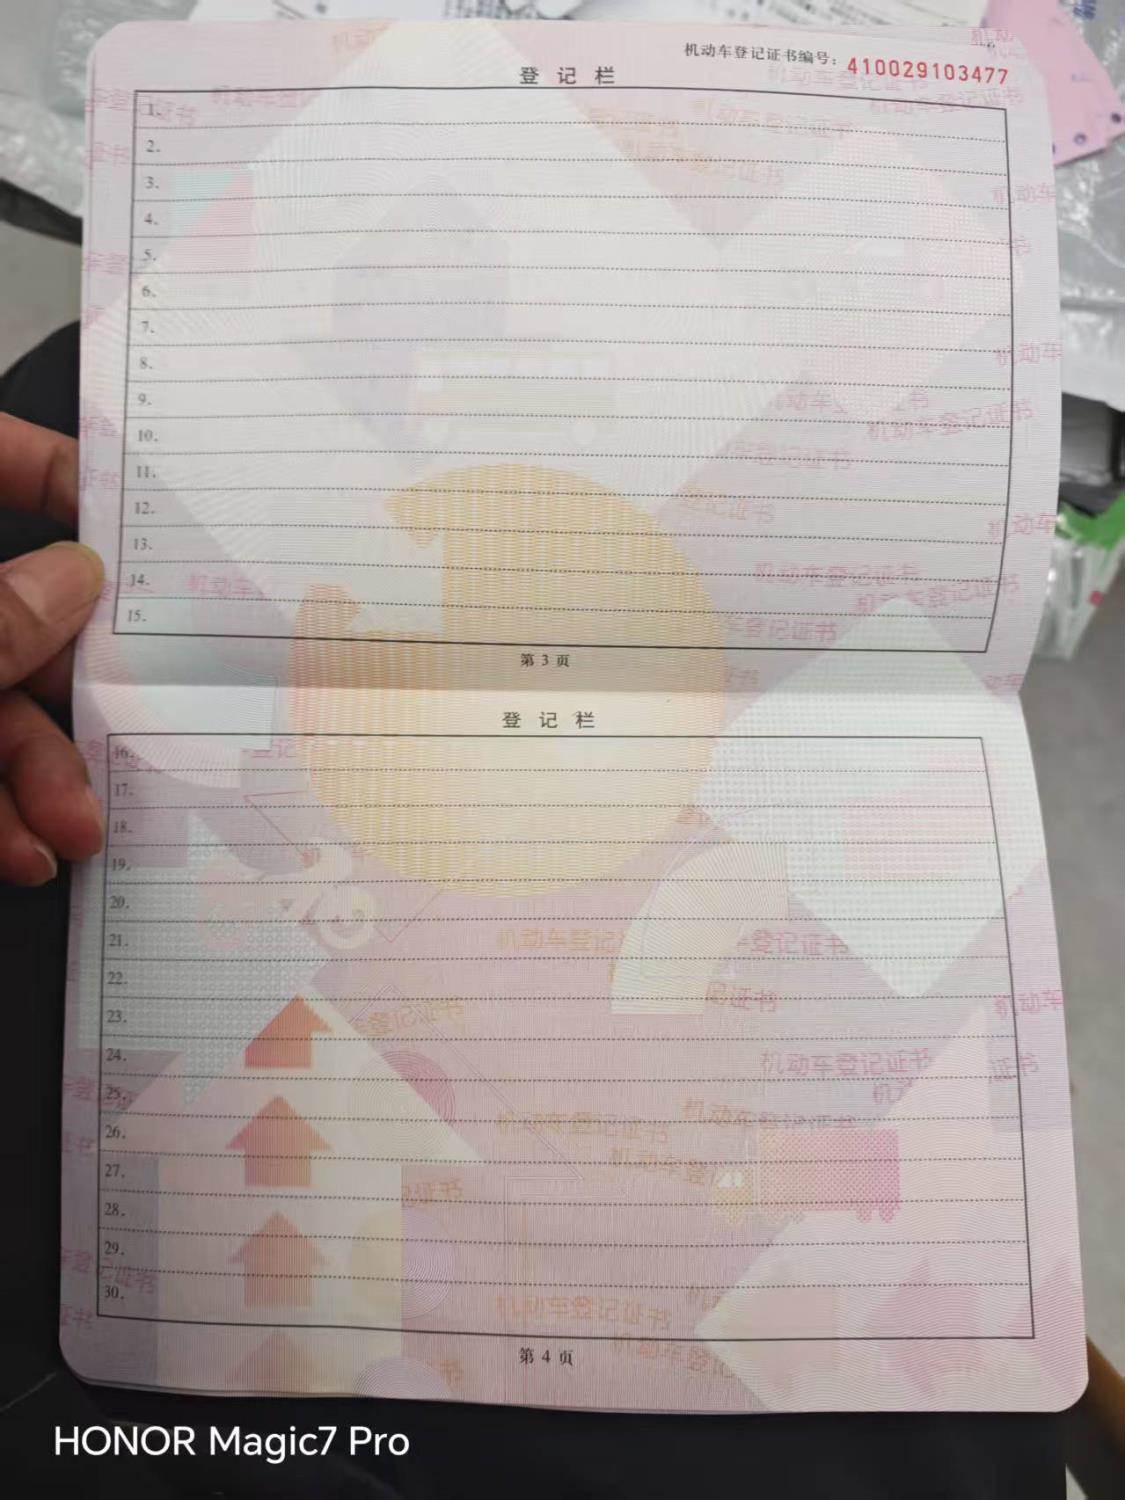 机动车登记证书编号：410029103477
登记栏
1.
2.
3.
4.
5.
6.
7.
8.
9.
10.
11.
12.
13.
14.
15.
第 3 页
登记栏
16.
17.
18.
19.
20.
21.
22.
23.
24.
25.
26.
27.
28.
29.
30.
第 4 页
HONOR Magic7 Pro